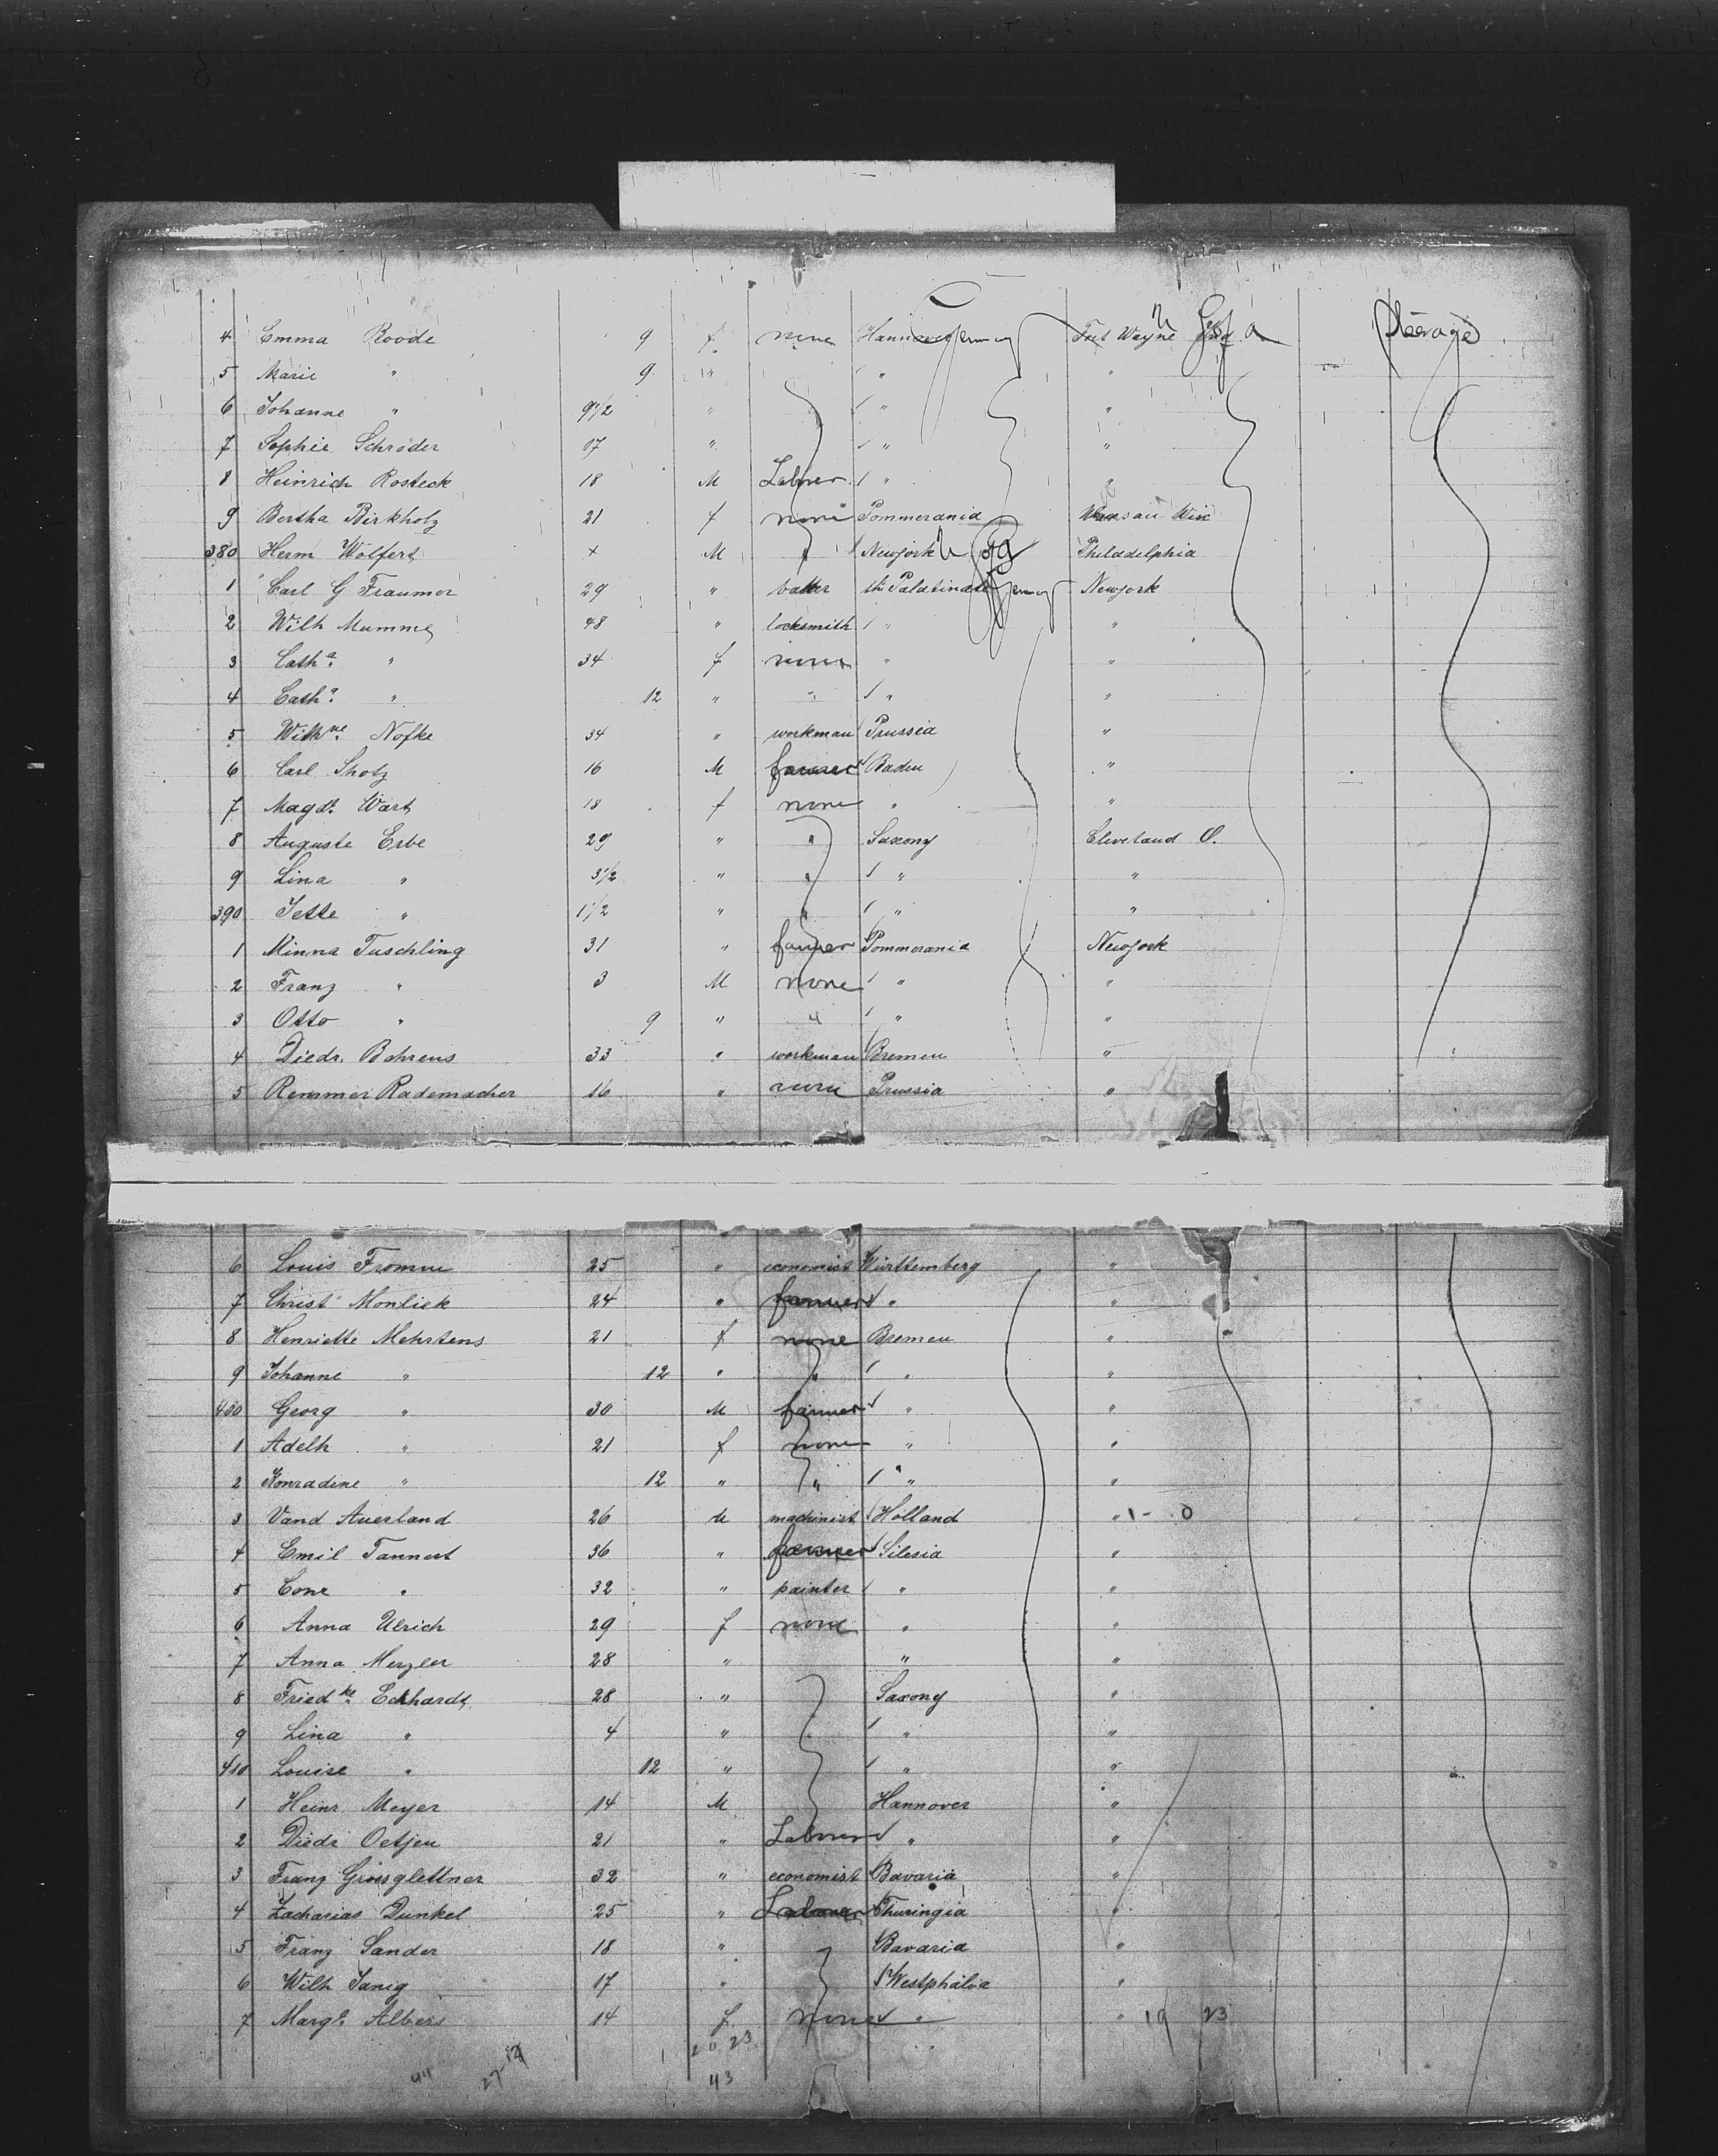 4 Emma Roode 9 f. none Hannover Germany Fort Wayne Steerage
5 Marie " 9 " " "
6 Johanne " 9 1/2 " " " "
7 Sophie Schröder 07 " " "
8 Heinrich Rosteck 18 M Laborer " "
9 Bertha Birkholz 21 f none Pommerania Wausau Wis
380 Herm Wolfert x M " Newjork Philadelphia
1 Carl G Fraumer 29 " the Palatinate Germany Newjork
2 Wilh Mumme 48 " locksmith " "
3 Cath.a " 34 f none " "
4 Cath.a " 12 " " " "
5 Wilh.ne Nofke 34 " workman Prussia "
6 Carl Shotz 16 M farmer Baden "
7 Magd.a Wart 18 f none " "
8 Auguste Erbe 29 " " Saxony Cleveland O.
9 Lina " 3 1/2 " " " "
390 Jette " 1 1/2 " " " "
1 Minna Tuschling 31 " farmer Pommerania Newjork
2 Franz " 3 M none " "
3 Otto " 9 " " " "
4 Diedr. Behrens 33 " workman Bremen "
5 Remmer Rademacher 16 " none Prussia "
6 Louis Fromm 25 " economist Württemberg "
7 Christ Monliek 24 " farmer " "
8 Henriette Mehrtens 21 f none Bremen "
9 Johanne " 12 " " " "
400 Georg " 30 M farmer " "
1 Adelh " 21 f none " "
2 Konradine " 12 " " " "
3 Vand Auerland 26 M machinist Holland " 1 - 0
4 Emil Tannert 36 " farmer Silesia "
5 Cone " 32 " painter " "
6 Anna Ulrich 29 f none " "
7 Anna Merzler 28 " " "
8 Fried.ke Eckhardt 28 " Saxony "
9 Lina " 4 " " "
410 Louise " 12 " " "
1 Heinr Meyer 14 M Hannover "
2 Diedr Oetjen 21 " Laborer " "
3 Franz Groisglettner 32 " economist Bavaria "
4 Zacharias Dunkel 25 " Laborer Thuringia "
5 Franz Sander 18 " Bavaria "
6 Wilh Janig 17 " Westphalia "
7 Marg.a Albers 14 f none " " 19 23
20 23
44 27-17 43